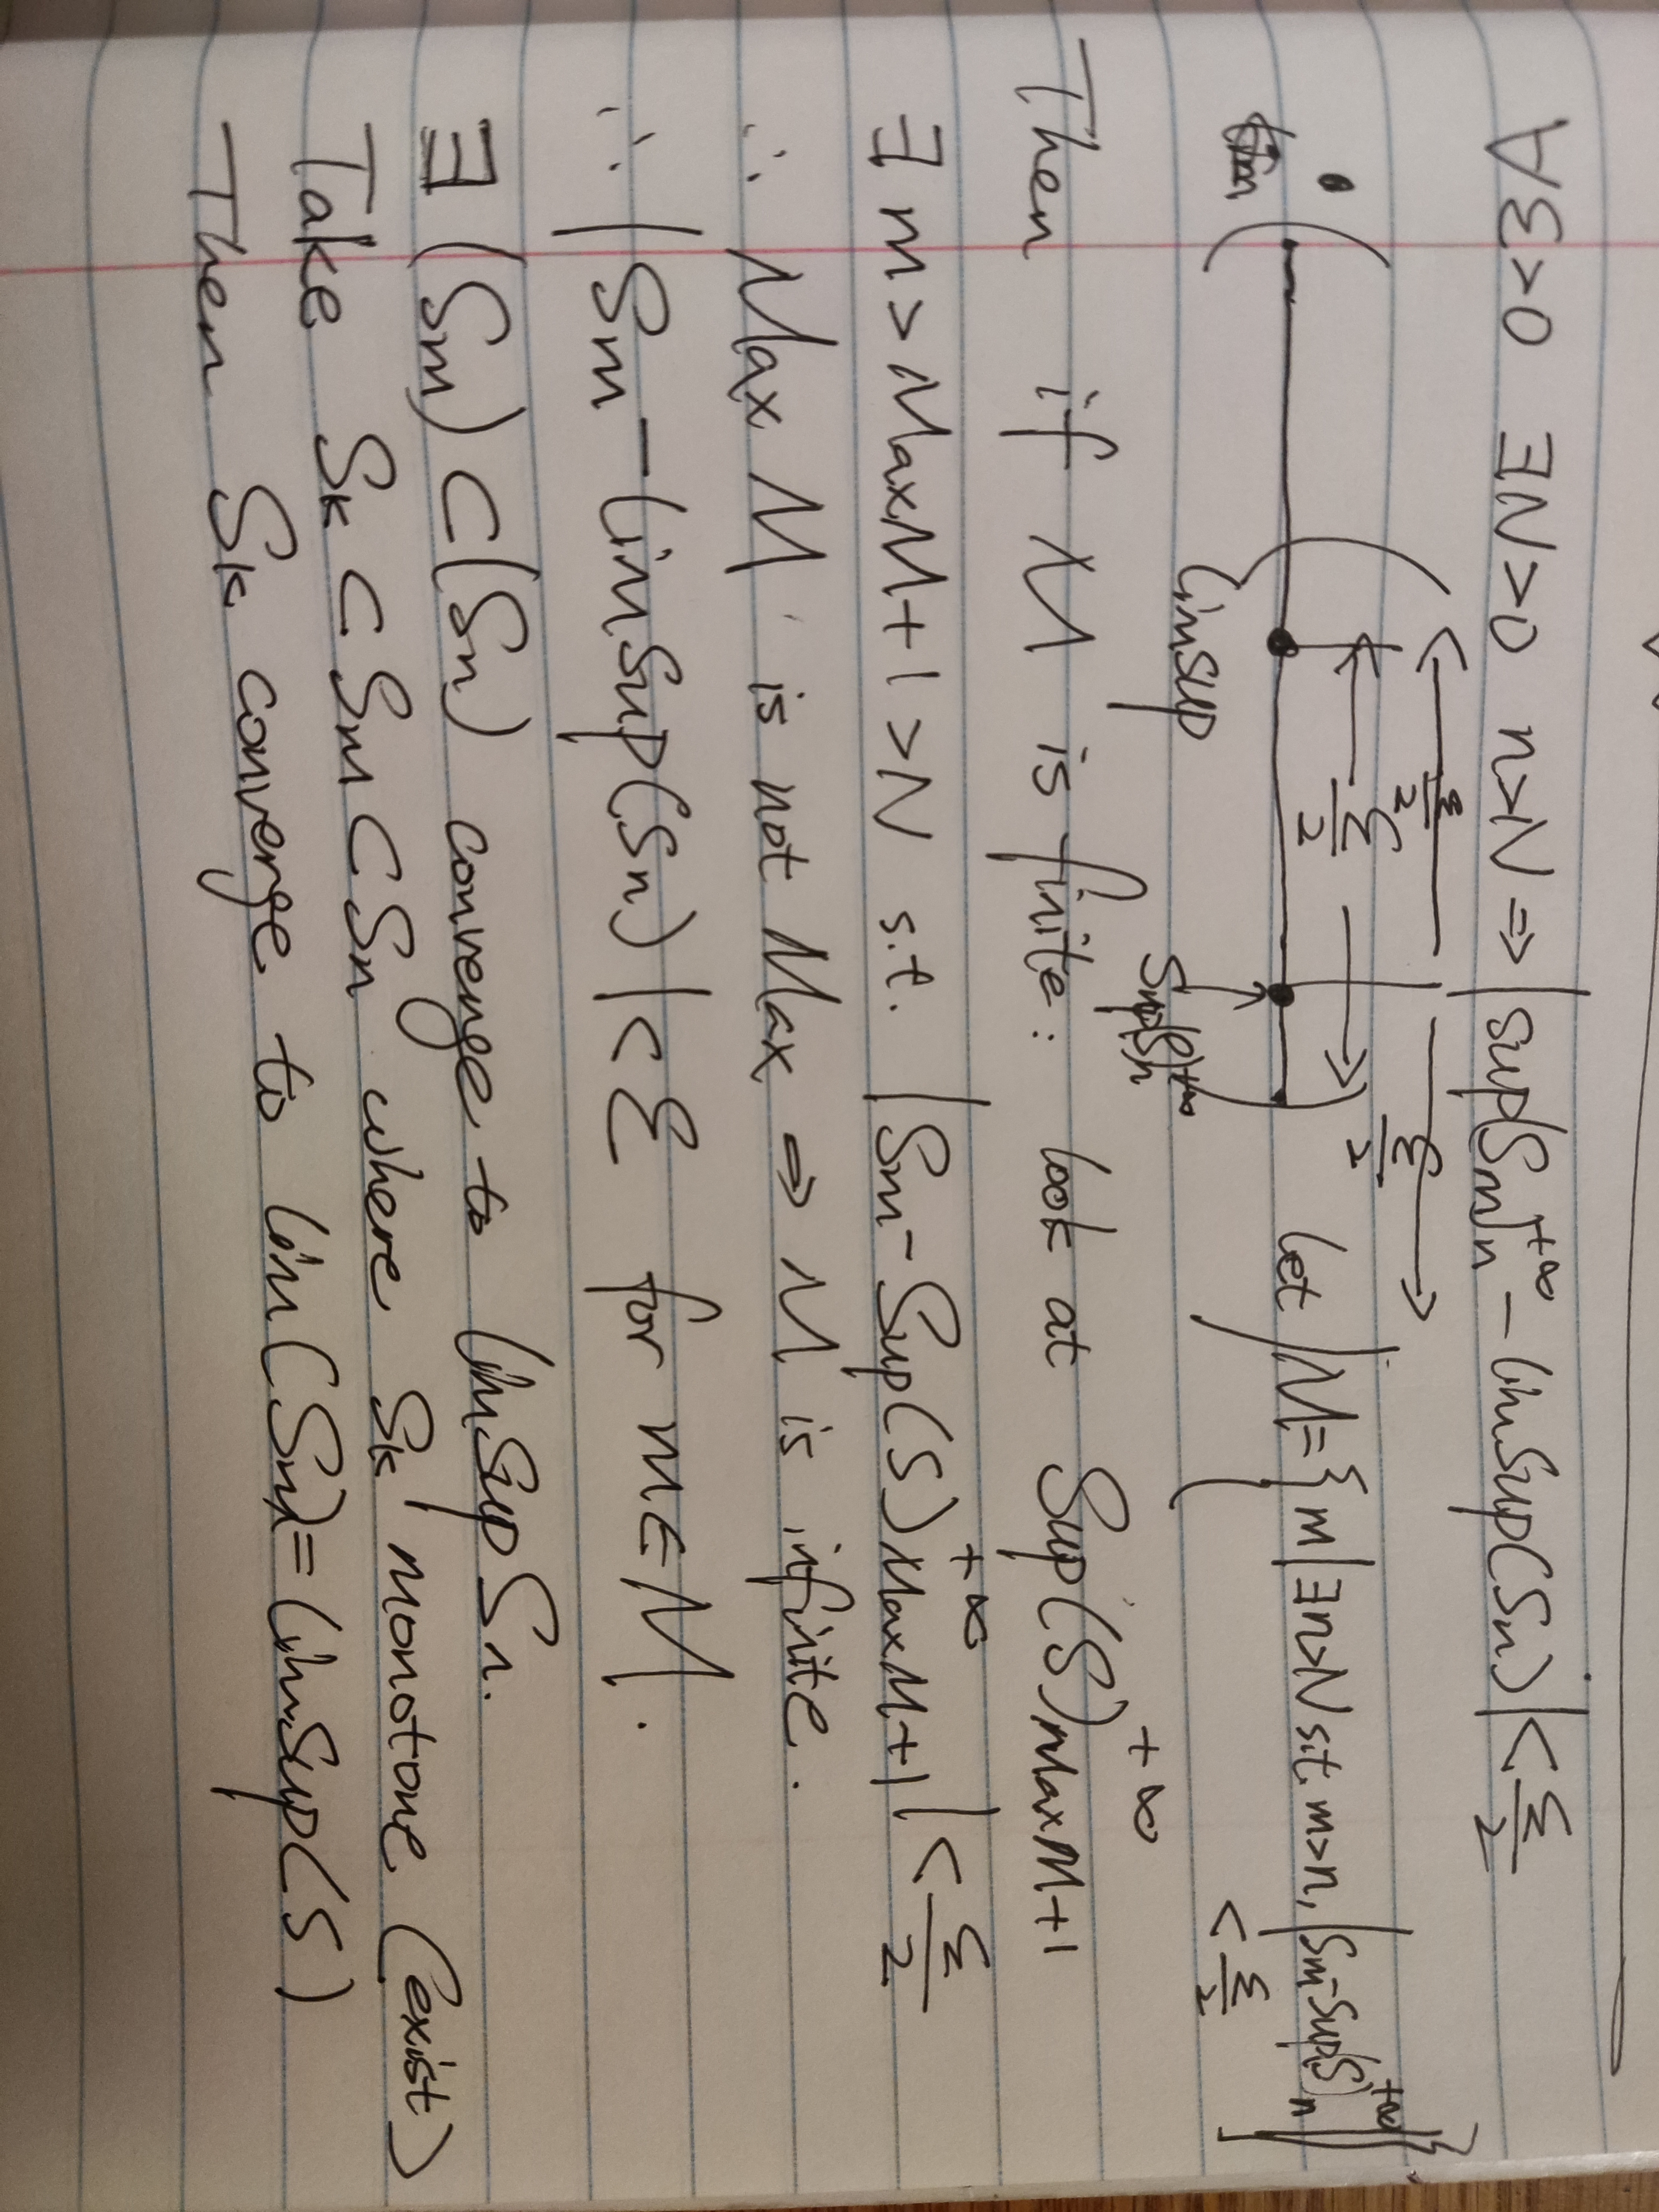 ∀ε>0 ∃N>0 n>N ⇒ |sup(Sm)n^+∞ - limsup(Sn)| < ε/2
ε/2 ε/2 ε/2
limsup Sup(S)n^+∞ let M={m|∃n>N s.t. m>n, |Sm-Sup(S)n^+∞| < ε/2}
Then if M is finite: look at Sup(S)MaxM+1^+∞
∃ m>MaxM+1>N s.t. |Sm-Sup(S)MaxM+1^+∞| < ε/2
∴ Max M is not Max ⇒ M is infinite.
∴ |Sm-limsup(Sn)|<ε for m∈M.
∃ (Sm)⊂(Sn) convenge to limsup Sn.
Take Sk ⊂ Sm ⊂ Sn where Sk monotone (exist)
Then Sk converge to lim(Sm)=limsup(S)